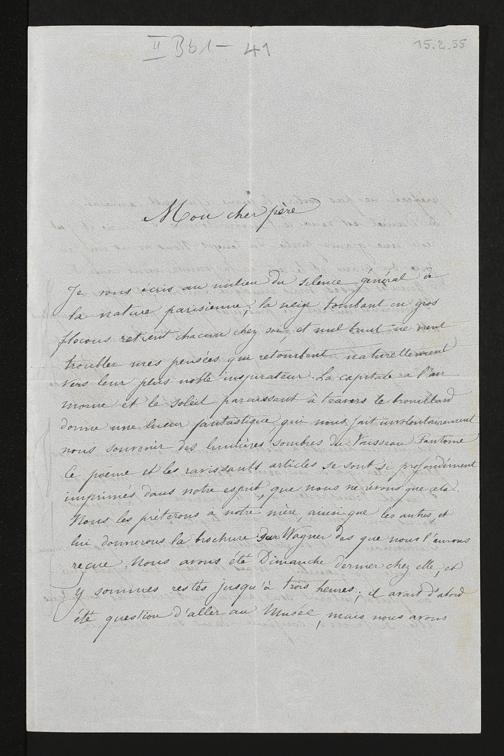 II Bb1-41
15.2.55
Mon cher père
Je vous écris au milieu du silence général de
la nature parisienne; la neige tombant en gros
flocons retient chacun chez soi, et nul bruit ne vient
troubler mes pensées qui retombent naturellement
vers leur plus noble inspirateur. La capitale a l'air
morne et le soleil paraissant à travers le brouillard
donne une lueur fantastique qui nous fait involontairement
nous souvenir des lumières sombres du Vaisseau fantome
Ce poeme et les ravissants articles se sont si profondément
imprimés dans notre esprit, que nous ne rêvons que cela.
Nous les prêterons à notre mère, ainsi que les autres, et
lui donnerons la brochure sur Wagner dès que nous l'aurons
reçue. Nous avons été Dimanche dernier chez elle, et
y sommes restés jusqu'à trois heures; il avait d'abord
été question d'aller au Musée, mais nous avons